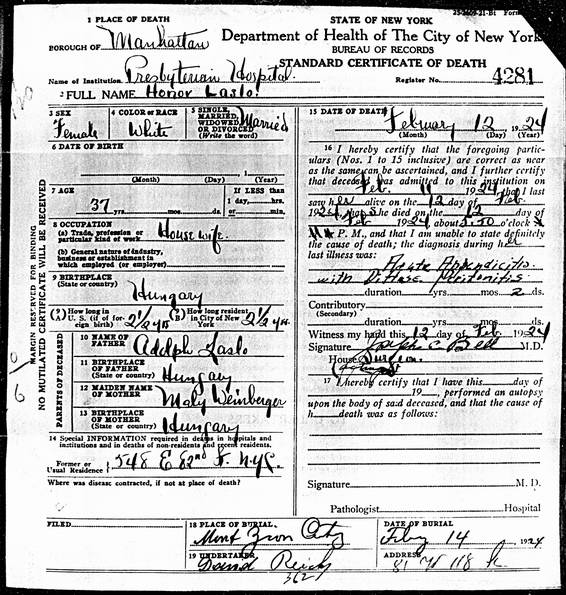 1 PLACE OF DEATH
STATE OF NEW YORK
BOROUGH OF Manhattan
Department of Health of The City of New York
BUREAU OF RECORDS
STANDARD CERTIFICATE OF DEATH
Name of Institution Presbyterian Hospital.
Register No. 4281
2 FULL NAME Honor Laslo
3 SEX Female
4 COLOR or RACE White
5 SINGLE, MARRIED, WIDOWED OR DIVORCED (Write the word) Married
6 DATE OF BIRTH
(Month) (Day) (Year)
7 AGE 37 yrs. mos. ds.
If LESS than 1 day, hrs. or min.
8 OCCUPATION
(a) Trade, profession or particular kind of work Housewife.
(b) General nature of industry, business or establishment in which employed (or employer)
9 BIRTHPLACE
(State or country) Hungary
How long in U. S. (if of foreign birth) 2 1/2 yrs
How long resident in City of New York 2 1/2 yrs.
PARENTS OF DECEASED
10 NAME OF FATHER Adolph Laslo
11 BIRTHPLACE OF FATHER (State or country) Hungary
12 MAIDEN NAME OF MOTHER Maly Weinberger
13 BIRTHPLACE OF MOTHER (State or country) Hungary
14 Special INFORMATION required in deaths in hospitals and institutions and in deaths of non-residents and recent residents.
Former or Usual Residence 548 E 82nd St. N.Y.C.
Where was disease contracted, if not at place of death?
FILED
15 DATE OF DEATH
February 12, 1924
(Month) (Day) (Year)
16 I hereby certify that the foregoing particulars
(Nos. 1 to 15 inclusive) are correct as near
as the same can be ascertained, and I further
certify that deceased was admitted to this institution on
Feb. 11 1924, that I last
saw her alive on the 12 day of Feb.
1924, that she died on the 12 day of
Feb 1924, about 5.30 o'clock
P. M., and that I am unable to state definitely
the cause of death; the diagnosis during her
last illness was:
Acute Appendicitis
with Diffuse Peritonitis
duration yrs. mos. 2 ds.
Contributory
(Secondary)
duration yrs. mos. ds.
Witness my hand this 12 day of Feb. 1924
Signature Bell M.D.
House Surgeon.
17 I hereby certify that I have this day of
19 , performed an autopsy
upon the body of said deceased, and that the cause of
h death was as follows:
Signature M. D.
Pathologist Hospital
18 PLACE OF BURIAL
Mount Zion
DATE OF BURIAL
Feby 14 1924
19 UNDERTAKER
David Reich
3621
ADDRESS
81 W 118
MARGIN RESERVED FOR BINDING
NO MUTILATED CERTIFICATE WILL BE RECEIVED